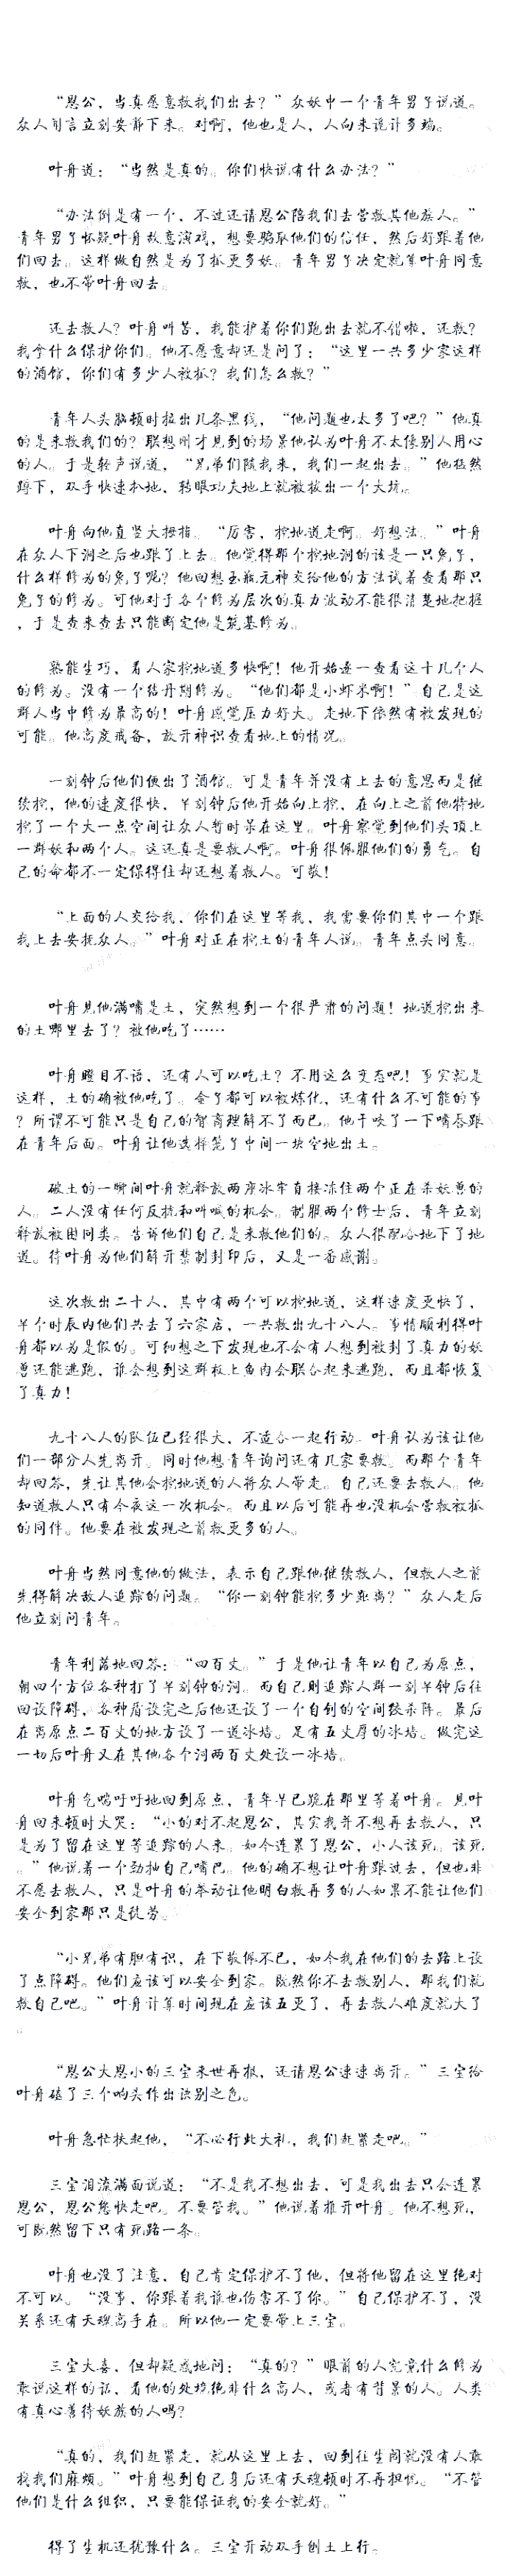 “恩公，当真愿意救我们出去？”众妖中一个青年男子说道。
众人闻言立刻安静下来。对啊，他也是人，人向来诡计多端。
叶舟道：“当然是真的。你们快说有什么办法？”
“办法倒是有一个，不过还请恩公陪我们去营救其他族人。”
青年男子怀疑叶舟故意演戏，想要骗取他们的信任，然后好跟着他
们回去。这样做自然是为了抓更多妖。青年男子决定就算叶舟同意
救，也不带叶舟回去。
还去救人？叶舟叫苦，我能护着你们跑出去就不错啦，还救？
我拿什么保护你们。他不愿意却还是问了：“这里一共多少家这样
的酒馆，你们有多少人被抓？我们怎么救？”
青年人头脑顿时拉出几条黑线，“他问题也太多了吧？”他真
的是来救我们的？联想刚才见到的场景他认为叶舟不太像别人用心
的人。于是轻声说道，“兄弟们随我来，我们一起出去。”他猛然
蹲下，双手快速扒地、转眼功夫地上就被拔出一个大坑。
叶舟向他直竖大拇指。“厉害，挖地道走啊。好想法。”叶舟
在众人下洞之后也跟了上去。他觉得那个挖地洞的该是一只兔子，
什么样修为的兔子呢？他回想玉瓶元神交给他的方法试着查看那只
兔子的修为。可他对于各个修为层次的真力波动不能很清楚地把握
，于是查来查去只能断定他是筑基修为。
熟能生巧，看人家挖地道多快啊！他开始逐一查看这十几个人
的修为。没有一个结丹期修为。“他们都是小虾米啊！”自己是这
群人当中修为最高的！叶舟感觉压力好大。走地下依然有被发现的
可能。他高度戒备，放开神识查看地上的情况。
一刻钟后他们便出了酒馆。可是青年并没有上去的意思而是继
续挖，他的速度很快，半刻钟后他开始向上挖，在向上之前他特地
挖了一个大一点空间让众人暂时呆在这里。叶舟察觉到他们头顶上
一群妖和两个人。这还真是要救人啊。叶舟很佩服他们的勇气。自
己的命都不一定保得住却还想着救人。可敬！
“上面的人交给我、你们在这里等我，我需要你们其中一个跟
我上去安抚众人。”叶舟对正在挖土的青年人说。青年点头同意。
叶舟见他满嘴是土，突然想到一个很严肃的问题！地道挖出来
的土哪里去了？被他吃了……
叶舟瞪目不语，还有人可以吃土？不用这么变态吧！事实就是
这样，土的确被他吃了。金子都可以被炼化，还有什么不可能的事
？所谓不可能只是自己的智商理解不了而已。他干咬了一下嘴唇跟
在青年后面。叶舟让他选择笼子中间一块空地出土。
破土的一瞬间叶舟就释放两座冰牢直接冻住两个正在杀妖兽的
人。二人没有任何反抗和叫喊的机会。制服两个修士后，青年立刻
释放被困同类。告诉他们自己是来救他们的。众人很配合地下了地
道。待叶舟为他们解开禁制封印后，又是一番感谢。
这次救出二十人，其中有两个可以挖地道，这样速度更快了，
半个时辰内他们共去了六家店，一共救出九十八人。事情顺利得叶
舟都以为是假的。可细想之下发现也不会有人想到被封了真力的妖
兽还能逃跑，谁会想到这群板上鱼肉会联合起来逃跑，而且都恢复
了真力！
九十八人的队伍已经很大，不适合一起行动。叶舟认为该让他
们一部分人先离开。同时他想青年询问还有几家要救。而那个青年
却回答，先让其他会挖地道的人将众人带走。自己还要去救人。他
知道救人只有今夜这一次机会。而且以后可能再也没机会营救被抓
的同伴。他要在被发现之前救更多的人。
叶舟当然同意他的做法，表示自己跟他继续救人，但救人之前
先得解决敌人追踪的问题。“你一刻钟能挖多少距离？”众人走后
他立刻问青年。
青年利落地回答：“四百丈。”于是他让青年以自己为原点，
朝四个方位各种打了半刻钟的洞。而自己则追踪人群一刻半钟后往
回设障碍，各种盾设完之后他还设了一个自创的空间绞杀阵。最后
在离原点二百丈的地方设了一道冰墙。足有五丈厚的冰墙。做完这
一切后叶舟又在其他各个洞两百丈处设一冰墙。
叶舟气喘吁吁地回到原点，青年早已跪在那里等着叶舟。见叶
舟回来顿时大哭：“小的对不起恩公，其实我并不想再去救人，只
是为了留在这里等追踪的人来。如今连累了恩公，小人该死。该死
。”他说着一个劲抽自己嘴巴。他的确不想让叶舟跟过去，但也非
不愿去救人，只是叶舟的举动让他明白救再多的人如果不能让他们
安全到家那只是徒劳。
“小兄弟有胆有识，在下敬佩不已，如今我在他们的去路上设
了点障碍。他们应该可以安全到家。既然你不去救别人，那我们就
救自己吧。”叶舟计算时间现在应该五更了，再去救人难度就大了
。
“恩公大恩小的三宝来世再报，还请恩公速速离开。”三宝给
叶舟磕了三个响头作出诀别之色。
叶舟急忙扶起他，“不必行此大礼，我们赶紧走吧。”
三宝泪流满面说道：“不是我不想出去，可是我出去只会连累
恩公，恩公您快走吧。不要管我。”他说着推开叶舟。他不想死，
可既然留下只有死路一条。
叶舟也没了注意，自己肯定保护不了他，但将他留在这里绝对
不可以。“没事，你跟着我谁也伤害不了你。”自己保护不了，没
关系还有天魂高手在。所以他一定要带上三宝。
三宝大喜，但却疑惑地问：“真的？”眼前的人究竟什么修为
敢说这样的话，看他的处境绝非什么高人，或者有背景的人。人类
有真心善待妖族的人吗？
“真的，我们赶紧走，就从这里上去，回到往生阁就没有人敢
找我们麻烦。”叶舟想到自己身后还有天魂顿时不再担忧。“不管
他们是什么组织，只要能保证我的安全就好。”
得了生机还犹豫什么。三宝开动双手刨土上行。